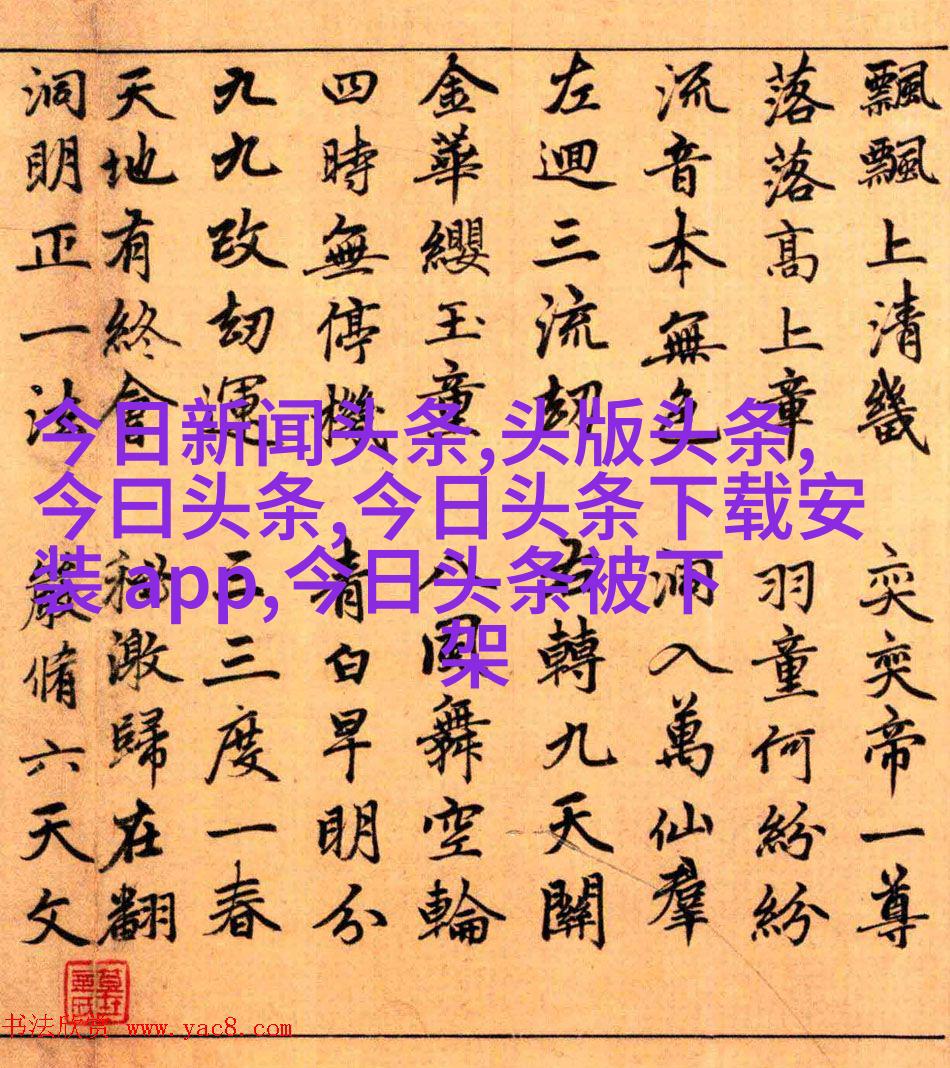 飄飄上清畿奕奕帝一尊
落落高上章羽童何紛紛
流音本無色洞入萬仙羣
左迴三流刧轉九天關
金華纓玉童八圓舞空輪
四時無停機青白早明分
九九改刧運三三度一春
天地有終會秘激歸在翻
洞明正一法嚴脩六天文
今日新闻头条,头版头条,
今曰头条,今日头条下载安
装 app,今日头条被下
架
书法欣赏 www.yac8.com